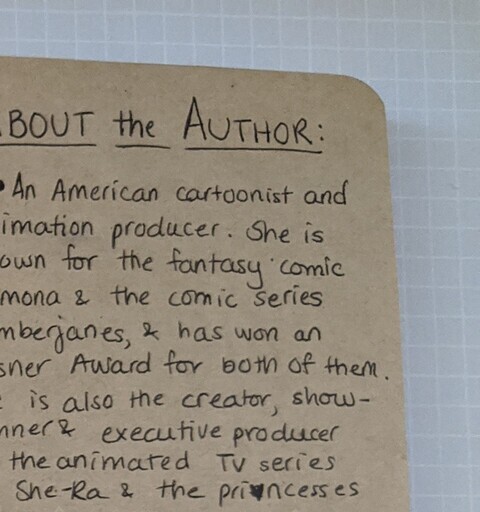 ABOUT the AUTHOR:
• An American cartoonist and
imation producer. She is
own for the fantasy comic
mona & the comic series
mberjanes, & has won an
sner Award for both of them.
is also the creator, show-
nner & executive producer
the animated TV series
She-Ra & the princesses